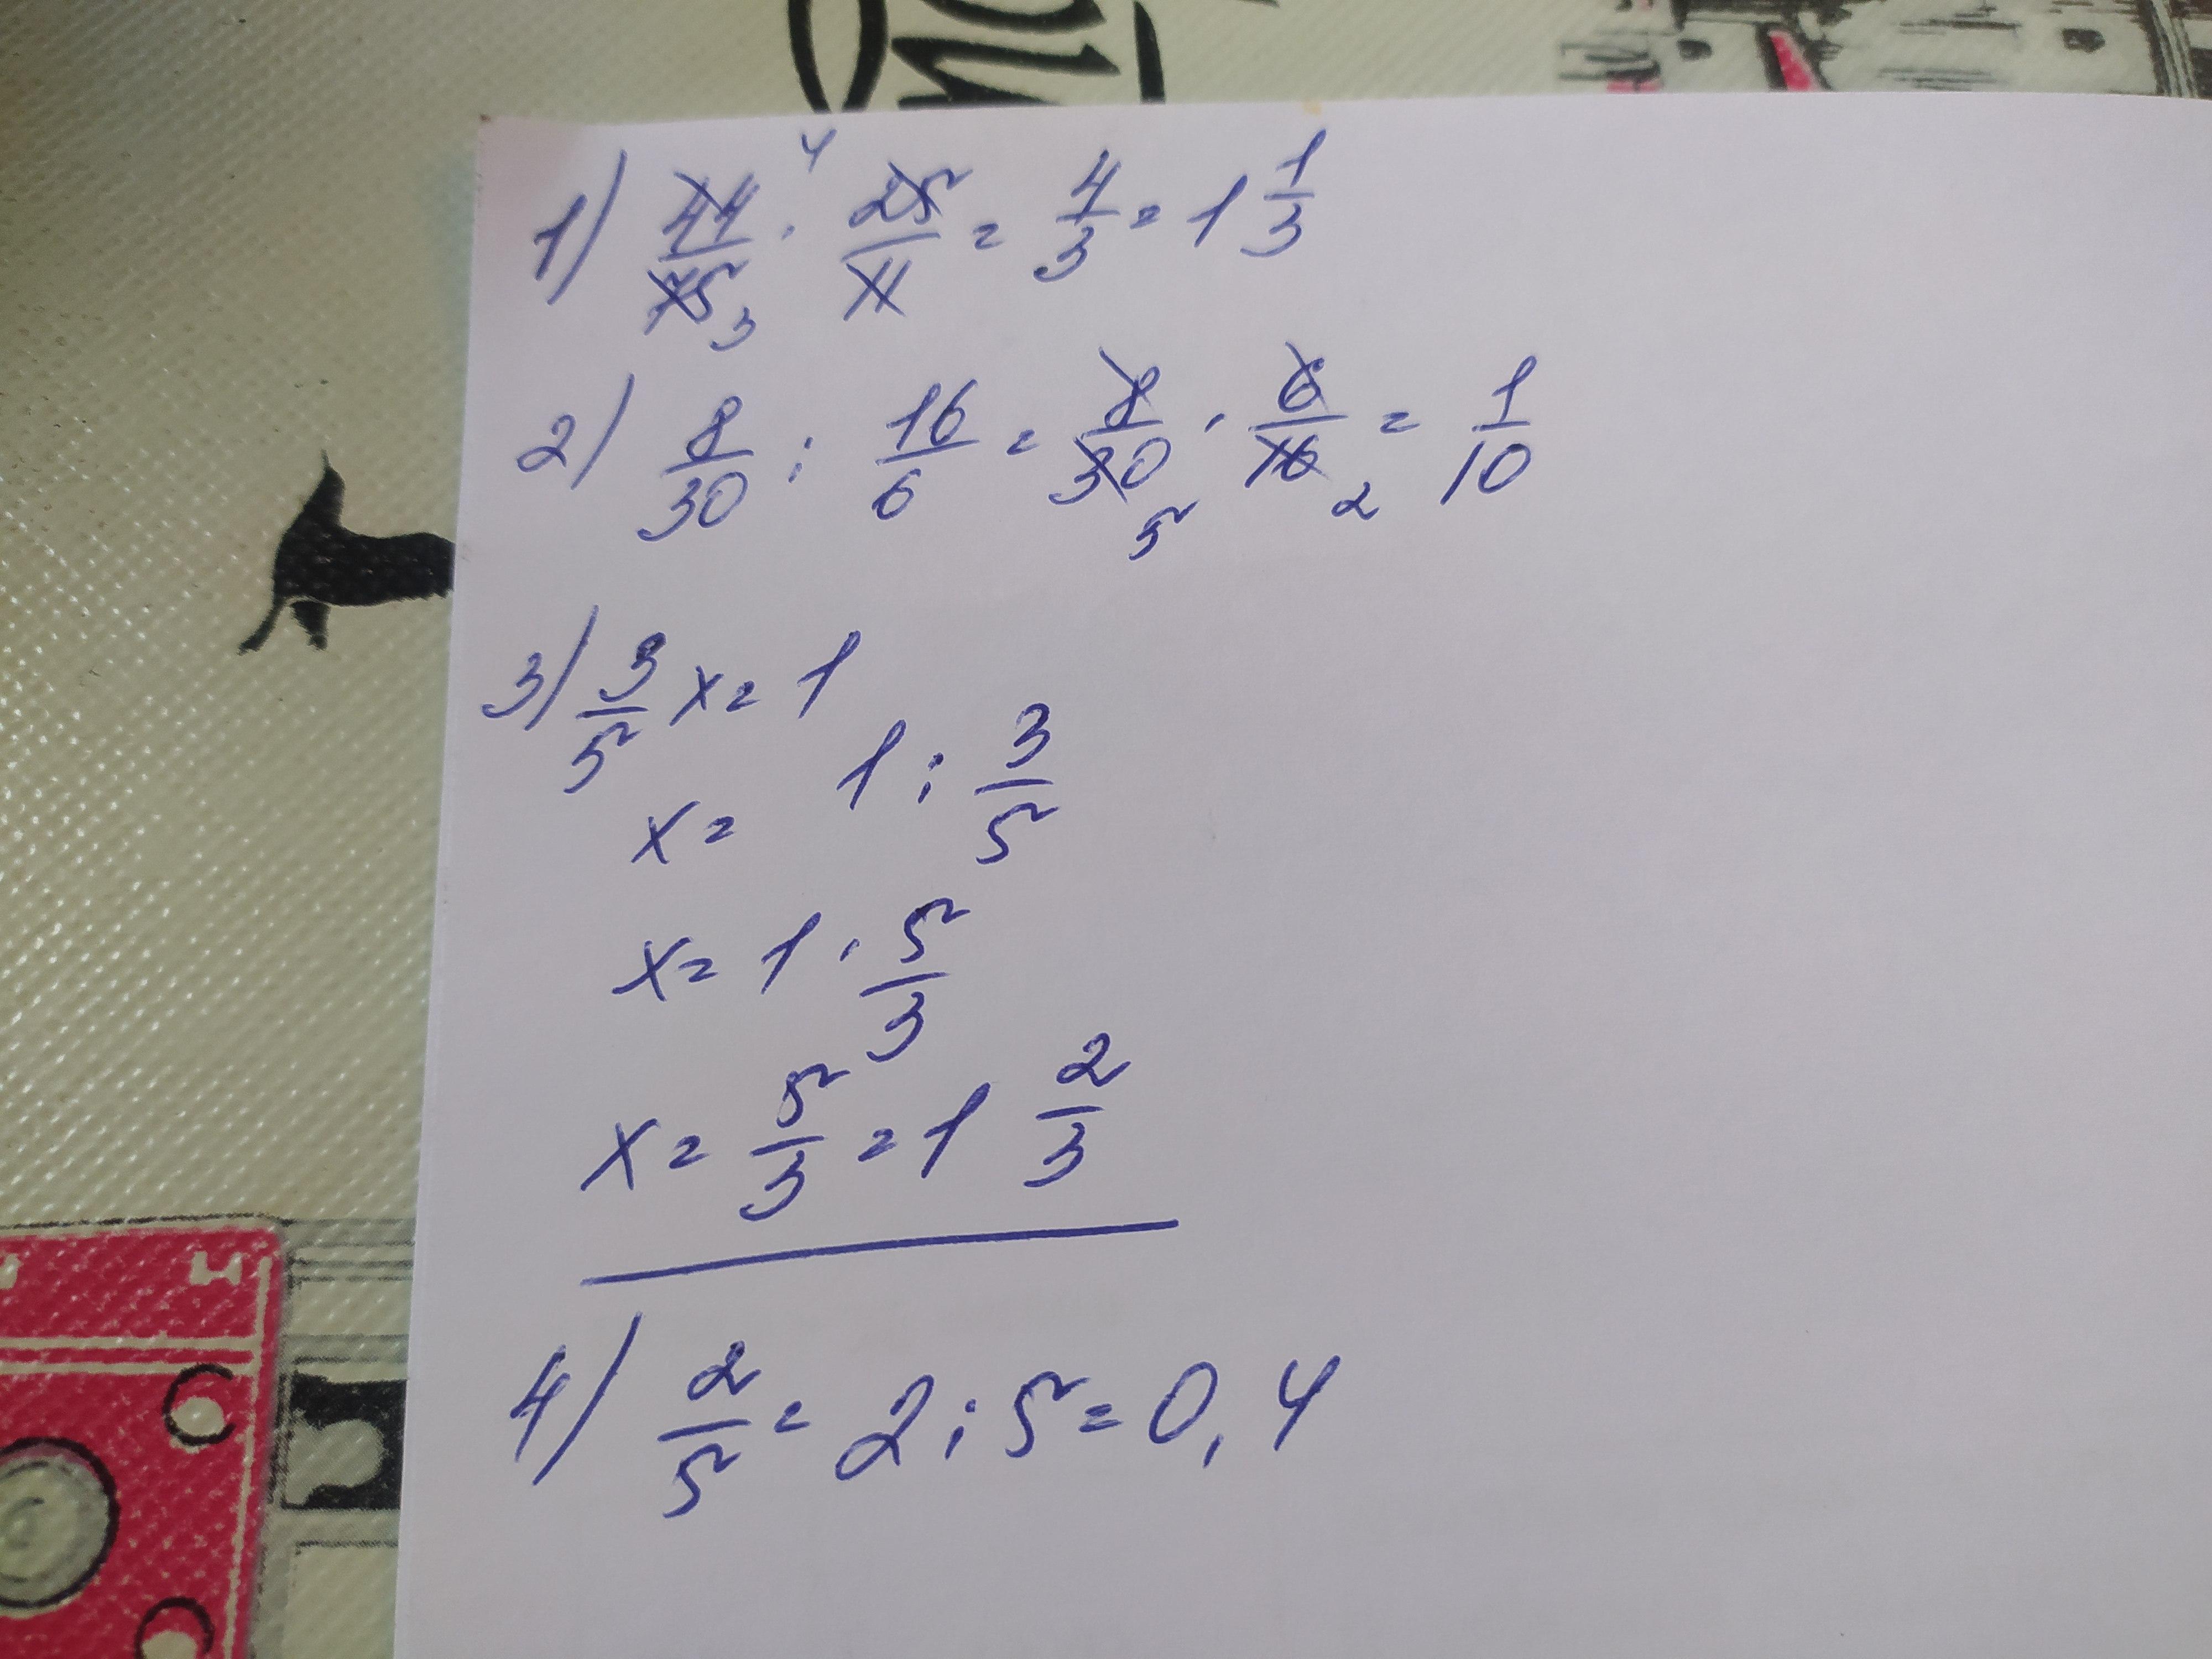 1) 44/75 · 25/11 = 4/3 = 1 1/3
4
3
2) 8/30 : 16/6 = 8/30 · 6/16 = 1/10
5 2
3) 3/5 x = 1
x = 1 : 3/5
x = 1 · 5/3
x = 5/3 = 1 2/3
4) 2/5 = 2 : 5 = 0,4